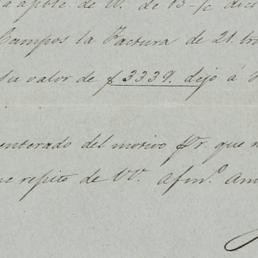 de V. de 13 -/c
Campos la Factura de 21.
su valor de £ 3339. dejó á
enterado del motivo Pr. que
repito de VV. afmo. Am